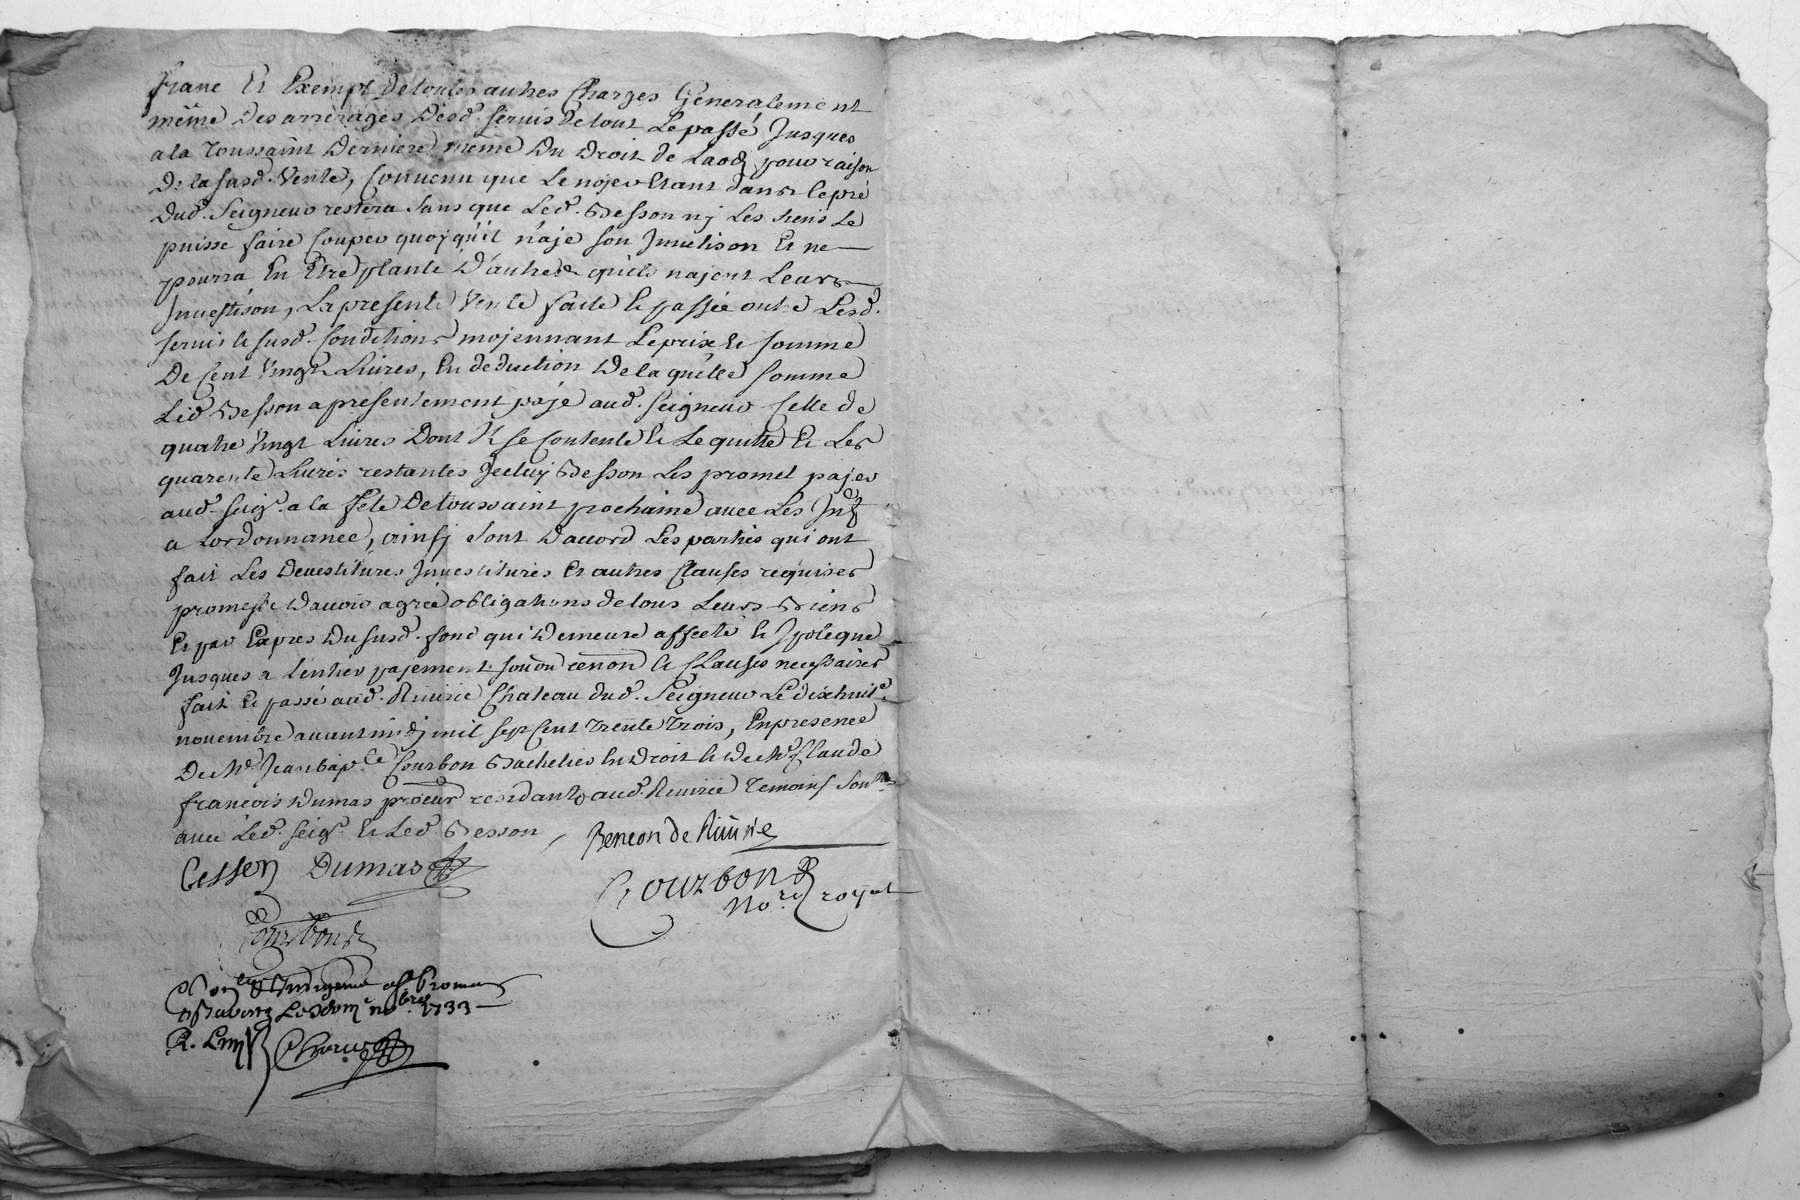 franc Et Exempt De toutes autres Charges Generalement
même Des arrerages Desd. servis De tout Le passé Jusques
a la Toussaint Derniere même Du Droit de Laod pour raison
De la susd. Vente, Convenu que Le nojer Etant dans le pré
Dud. Seigneur restera sans que Led. Besson nj Les siens Le
puisse faire Couper quoyqu'il n'aje son Inuetison Et ne
pourra En Etre planté D'autres qu'ils najent Leurs
Inuestison, La presente Vente faite Et passée outre Lesd.
servis et susd. Conditions mojennant Le prix Et somme
De Cent Vingt Liures, En deduction De la quelle somme
Led. Besson a presentement pajé aud. Seigneur Celle de
quatre Vingt Liures Dont Il se Contente Et Le quitte Et Les
quarente Liures restantes Jceluy Besson Les promet pajer
aud. Seigr. a la fête De toussaint prochaine auec Les Int
a Lordonnance, ainsj sont Daccord Les parties qui ont
fait Les Deuestitures Inuestitures Et autres Clauses requises
promesse Dauoir agreé obligations de tous Leurs Biens
Et par Expres Du susd. fond qui Demeure affecté Et Ipoteque
Jusques a Lentier pajement renon et Clauses necessaires
fait Et passé aud. Riuirie Chateau dud. Seigneur Le dixhuite
nouembre auant midj mil sept Cent Trente Trois, En presence
De Me Jean bapte Courbon Bachelier En Droit Et De Me Claude
françois Dumas procur residants aud. Riuirie Temoins sous
auec Led. Seigr. Et Led. Besson
Besson Dumas
Beneon de Riuirie
Courbon
Nore royal
Courbon
Le nobre 1733
R.